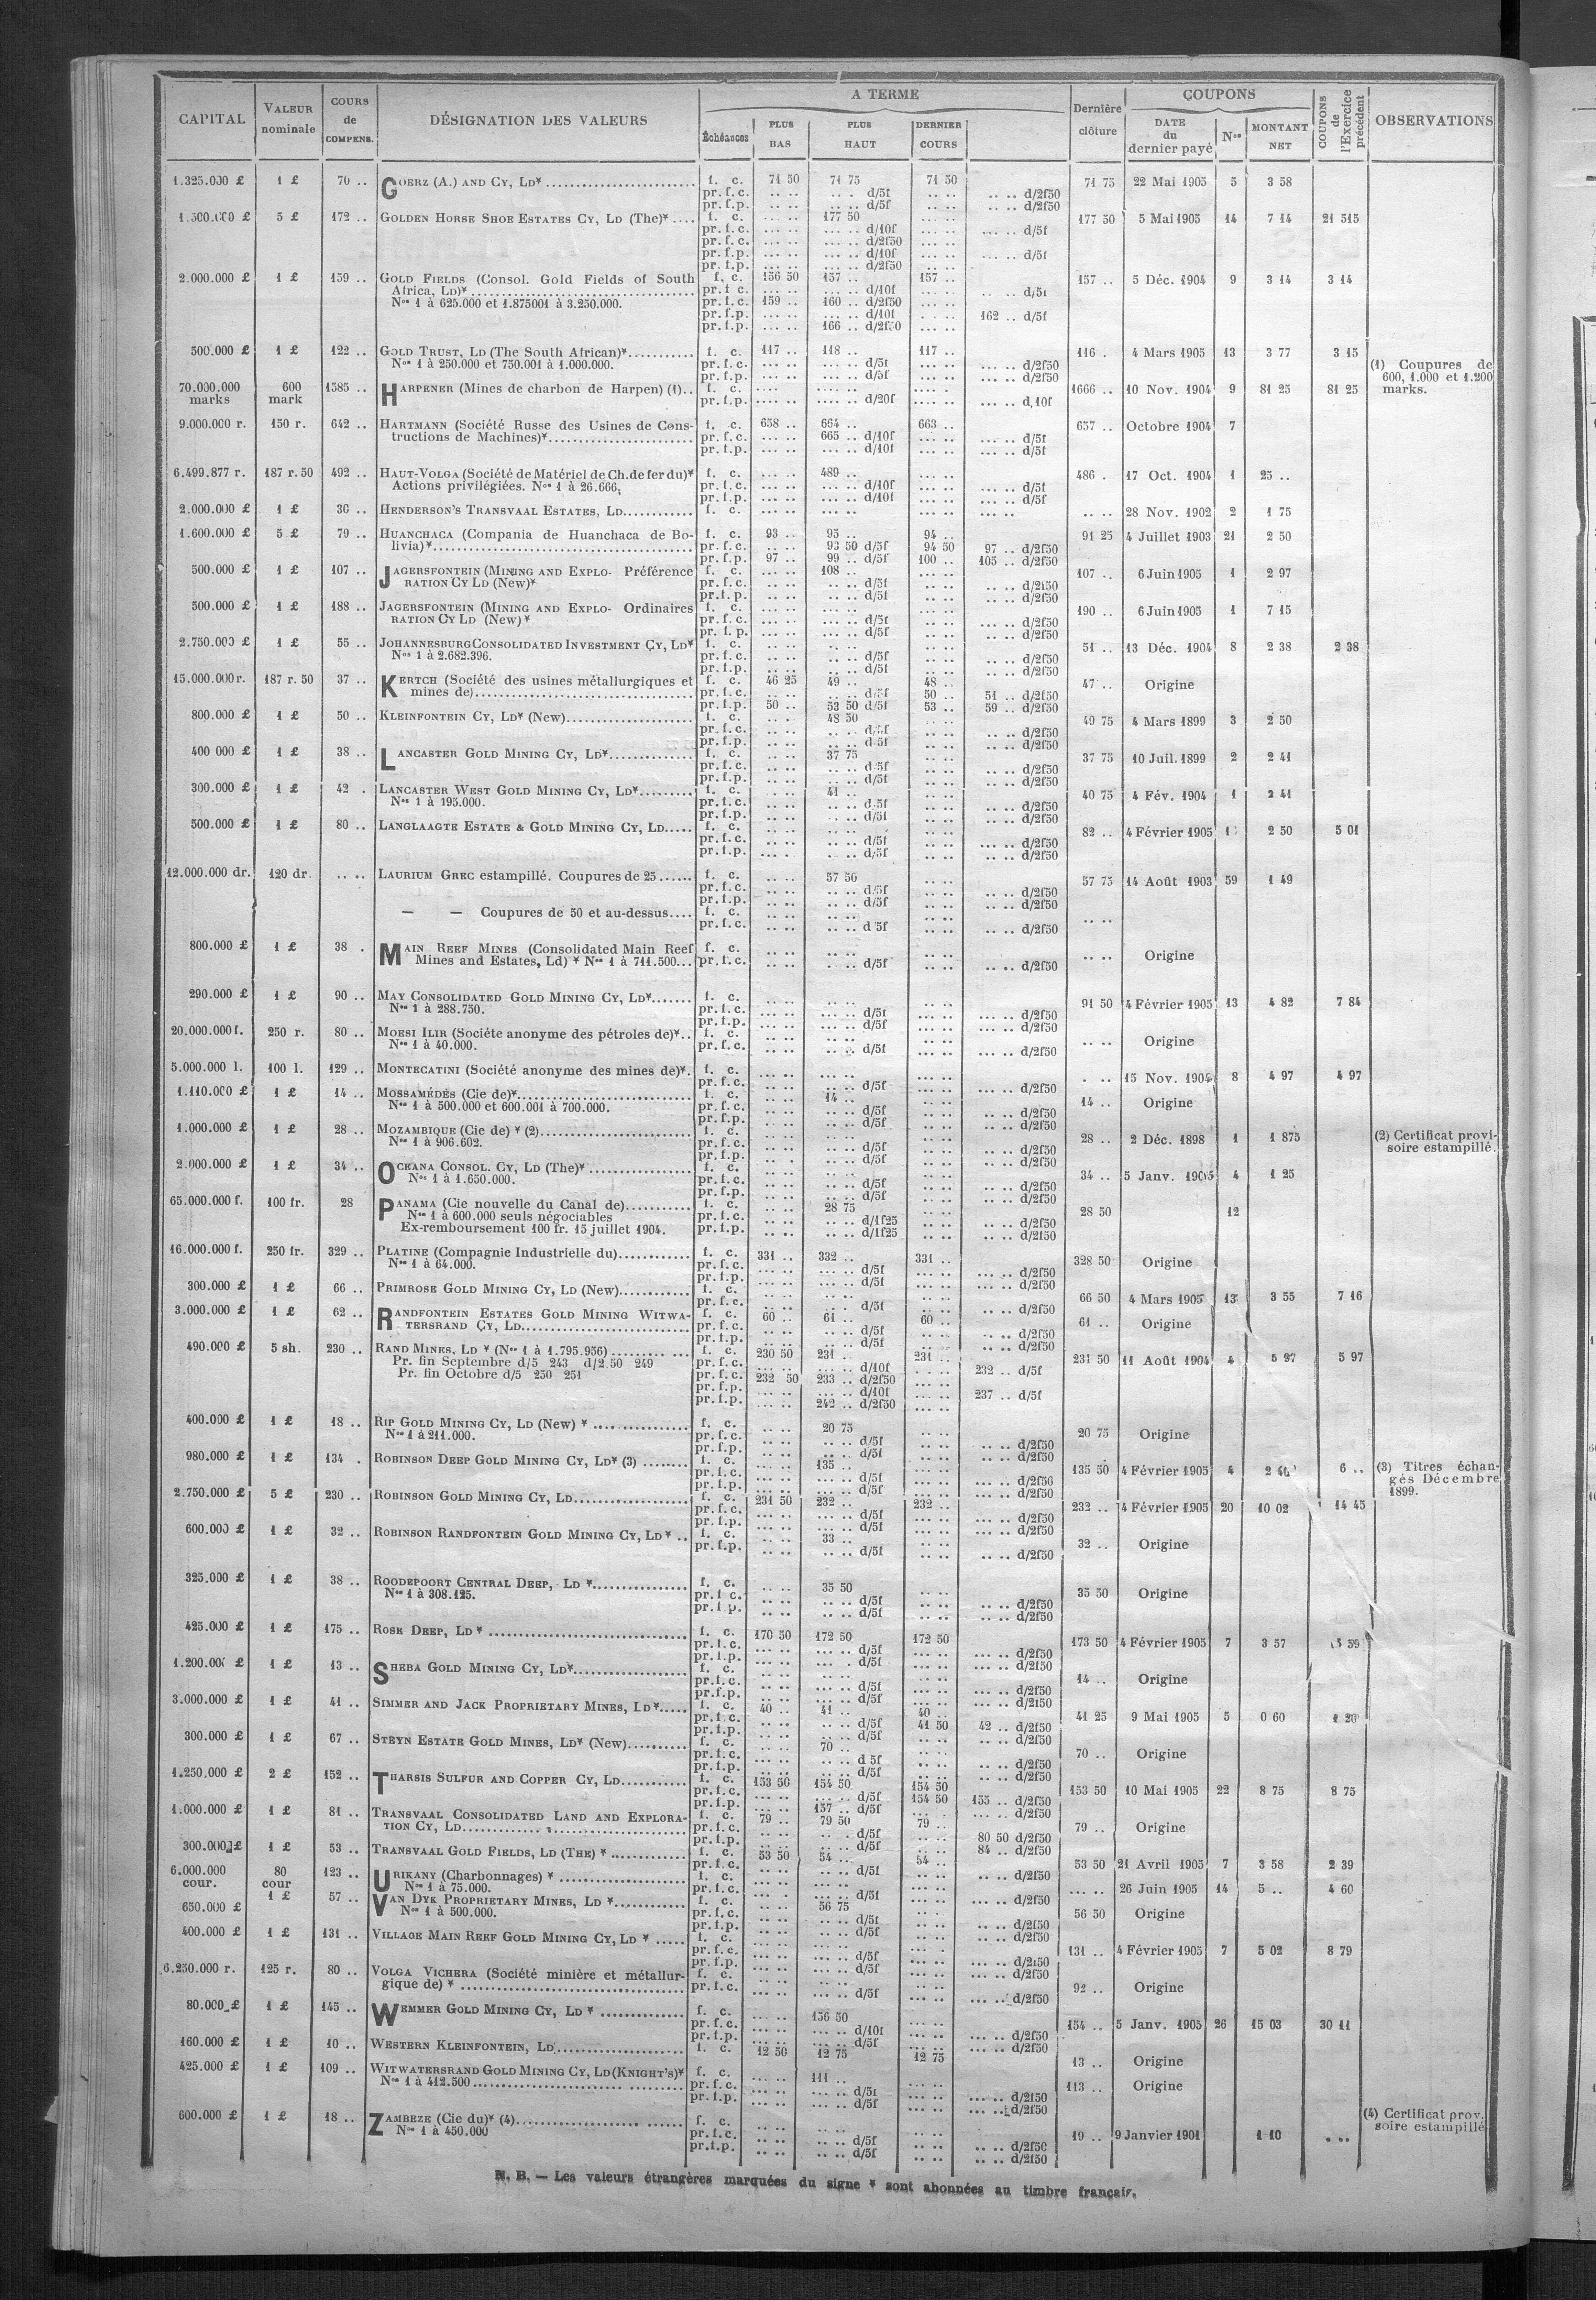 CAPITAL VALEUR nominale COURS de COMPENS. DÉSIGNATION DES VALEURS A TERME Dernière clôture COUPONS COUPONS de l'Exercice précédent OBSERVATIONS
Échéances PLUS BAS PLUS HAUT DERNIER COURS DATE du dernier payé Nos MONTANT NET
1.325.000 £ 1 £ 70 .. GOERZ (A.) AND CY, LD* f. c. 71 50 71 75 71 50 71 75 22 Mai 1905 5 3 58
pr. f. c. .. .. .. .. d/5f .. .. .. .. d/2f50
pr. f. p. .. .. .. .. d/5f .. .. .. .. d/2f50
1.500.000 £ 5 £ 172 .. GOLDEN HORSE SHOE ESTATES CY, LD (The)* .... f. c. 177 50 177 50 5 Mai 1905 14 7 14 21 515
pr. f. c. ... .. ... .. d/10f ... .. ... .. d/5f
pr. f. c. ... .. ... .. d/2f50 ... ..
pr. f. p. ... .. ... .. d/10f ... .. ... .. d/5f
pr. f. p. ... .. ... .. d/2f50
2.000.000 £ 1 £ 159 .. GOLD FIELDS (Consol. Gold Fields of South f. c. 156 50 157 .. 157 .. 157 .. 5 Déc. 1904 9 3 14 3 14
Africa, LD)* pr. f. c. ... .. ... .. d/10f ... .. d/5f
Nos 1 à 625.000 et 1.875001 à 3.250.000. pr. f. c. 159 .. 160 .. d/2f50
pr. f. p. ... .. ... .. d/10f 162 .. d/5f
pr. f. p. ... .. 166 .. d/2f50
500.000 £ 1 £ 122 .. GOLD TRUST, LD (The South African)* f. c. 117 .. 118 .. 117 .. 116 . 4 Mars 1905 13 3 77 3 15
Nos 1 à 250.000 et 750.001 à 1.000.000. pr. f. c. ... .. ... .. d/5f ... .. d/2f50 (1) Coupures de
pr. f. p. ... .. ... .. d/5f ... .. d/2f50 600, 1.000 et 1.200
70.000.000 600 1585 .. HARPENER (Mines de charbon de Harpen) (1).. f. c. 1666 .. 10 Nov. 1904 9 81 25 81 25 marks.
marks mark pr. f. p. .... .. .... .. d/20f .... .. d,10f
9.000.000 r. 150 r. 642 .. HARTMANN (Société Russe des Usines de Cons- f. c. 658 .. 664 .. 663 .. 657 .. Octobre 1904 7
tructions de Machines)* pr. f. c. ... .. 665 .. d/10f ... .. d/5f
pr. f. p. ... .. ... .. d/10f ... .. d/5f
6.499.877 r. 187 r. 50 492 .. HAUT-VOLGA (Société de Matériel de Ch. de fer du)* f. c. 489 .. 486 . 17 Oct. 1904 1 25 ..
Actions privilégiées. Nos 1 à 26.666, pr. f. c. ... .. ... .. d/10f ... .. d/5f
pr. f. p. ... .. ... .. d/10f ... .. d/5f
2.000.000 £ 1 £ 30 .. HENDERSON'S TRANSVAAL ESTATES, LD f. c. 28 Nov. 1902 2 1 75
1.600.000 £ 5 £ 79 .. HUANCHACA (Compania de Huanchaca de Bo- f. c. 93 .. 95 .. 94 .. 91 25 4 Juillet 1903 21 2 50
livia)* pr. f. c. .. .. 93 50 d/5f 94 50 97 .. d/2f50
pr. f. p. 97 .. 99 .. d/5f 100 .. 105 .. d/2f50
500.000 £ 1 £ 107 .. JAGERSFONTEIN (MINING AND EXPLO- Préférence f. c. 108 .. 107 .. 6 Juin 1905 1 2 97
RATION CY LD (New)* pr. f. c. ... .. d/5f ... .. d/2f50
pr. f. p. ... .. d/5f ... .. d/2f50
500.000 £ 1 £ 188 .. JAGERSFONTEIN (MINING AND EXPLO- Ordinaires f. c. 190 .. 6 Juin 1905 1 7 15
RATION CY LD (New)* pr. f. c. ... .. d/5f ... .. d/2f50
pr. f. p. ... .. d/5f ... .. d/2f50
2.750.000 £ 1 £ 55 .. JOHANNESBURG CONSOLIDATED INVESTMENT CY, LD* f. c. 51 .. 13 Déc. 1904 8 2 38 2 38
Nos 1 à 2.682.396. pr. f. c. .. .. d/5f .. .. d/2f50
pr. f. p. .. .. d/5f .. .. d/2f50
15.000.000 r. 187 r. 50 37 .. KERTCH (Société des usines métallurgiques et f. c. 46 25 49 .. 48 .. 47 .. Origine
mines de) pr. f. c. .. .. .. .. d/5f 50 .. 51 .. d/2f50
pr. f. p. 50 .. 53 50 d/5f 53 .. 59 .. d/2f50
800.000 £ 1 £ 50 .. KLEINFONTEIN CY, LD* (New) f. c. 48 50 49 75 4 Mars 1899 3 2 50
pr. f. c. .. .. d/5f .. .. d/2f50
pr. f. p. .. .. d 5f .. .. d/2f50
400 000 £ 1 £ 38 .. LANCASTER GOLD MINING CY, LD* f. c. 37 75 37 75 10 Juil. 1899 2 2 41
pr. f. c. .. .. d 5f .. .. d/2f50
pr. f. p. .. .. d/5f .. .. d/2f50
300.000 £ 1 £ 42 . LANCASTER WEST GOLD MINING CY, LD* f. c. 41 .. 40 75 4 Fév. 1904 1 2 41
Nos 1 à 195.000. pr. f. c. .. .. d.5f .. .. d/2f50
pr. f. p. .. .. d/5f .. .. d/2f50
500.000 £ 1 £ 80 .. LANGLAAGTE ESTATE & GOLD MINING CY, LD f. c. 82 .. 4 Février 1905 2 50 5 01
pr. f. c. .. .. d/5f ... .. d/2f50
pr. f. p. .. .. d/5f .. .. d/2f50
12.000.000 dr. 120 dr. .. .. LAURIUM GREC estampillé. Coupures de 25 f. c. 57 50 57 75 14 Août 1903 59 1 49
pr. f. c. .. .. d/5f .. .. d/2f50
pr. f. p. .. .. d/5f .. .. d/2f50
— — Coupures de 50 et au-dessus.... f. c. .. ..
pr. f. c. .. .. d 5f .. .. d/2f50
800.000 £ 1 £ 38 . MAIN REEF MINES (Consolidated Main Reef f. c. .. .. Origine
Mines and Estates, Ld) * Nos 1 à 711.500... pr. f. c. .. .. d/5f .. .. d/2f50
290.000 £ 1 £ 90 .. MAY CONSOLIDATED GOLD MINING CY, LD* f. c. 91 50 4 Février 1905 13 4 82 7 84
Nos 1 à 288.750. pr. f. c. ... .. d/5f ... .. d/2f50
pr. f. p. ... .. d/5f ... .. d/2f50
20.000.000 f. 250 r. 80 .. MOESI ILIR (Sociéte anonyme des pétroles de)*.. f. c. .. .. Origine
Nos 1 à 40.000. pr. f. c. .. .. d/5f ... .. d/2f50
5.000.000 l. 100 l. 129 .. MONTECATINI (Société anonyme des mines de)*. f. c. . .. 15 Nov. 1904 8 4 97 4 97
pr. f. c. ... .. d/5f ... .. d/2f50
1.110.000 £ 1 £ 14 .. MOSSAMÉDÈS (Cie de)* f. c. 14 .. 14 .. Origine
Nos 1 à 500.000 et 600.001 à 700.000. pr. f. c. .. .. d/5f .. .. d/2f50
pr. f. p. .. .. d/5f .. .. d/2f50
1.000.000 £ 1 £ 28 .. MOZAMBIQUE (Cie de) * (2) f. c. 28 .. 2 Déc. 1898 1 1 875 (2) Certificat provi-
Nos 1 à 906.602. pr. f. c. .. .. d/5f .. .. d/2f50 soire estampillé.
pr. f. p. .. .. d/5f .. .. d/2f50
2.000.000 £ 1 £ 34 .. OCEANA CONSOL. CY, LD (The)* f. c. 34 .. 5 Janv. 1905 4 1 25
Nos 1 à 1.650.000. pr. f. c. .. .. d/5f .. .. d/2f50
pr. f. p. .. .. d/5f .. .. d/2f50
65.000.000 f. 100 fr. 28 PANAMA (Cie nouvelle du Canal de) f. c. 28 75 28 50 12
Nos 1 à 600.000 seuls négociables pr. f. c. .. .. d/1f25 .. .. d/2f50
Ex-remboursement 100 fr. 15 juillet 1904. pr. f. p. .. .. d/1f25 .. .. d/2f50
16.000.000 f. 250 fr. 329 .. PLATINE (Compagnie Industrielle du) f. c. 331 .. 332 .. 331 .. 328 50 Origine
Nos 1 à 64.000. pr. f. c. ... .. d/5f ... .. d/2f50
pr. f. p. ... .. d/5f ... .. d/2f50
300.000 £ 1 £ 66 .. PRIMROSE GOLD MINING CY, LD (New) f. c. 66 50 4 Mars 1905 13 3 55 7 16
pr. f. c. .. .. d/5f .. .. d/2f50
3.000.000 £ 1 £ 62 .. RANDFONTEIN ESTATES GOLD MINING WITWA- f. c. 60 .. 61 .. 60 .. 61 .. Origine
TERSRAND CY, LD pr. f. c. .. .. d/5f .. .. d/2f50
pr. f. p. .. .. d/5f .. .. d/2f50
490.000 £ 5 sh. 230 .. RAND MINES, LD * (Nos 1 à 1.795.956) f. c. 230 50 231 .. 231 .. 231 50 11 Août 1904 4 5 97 5 97
Pr. fin Septembre d/5 243 d/2 50 249 pr. f. c. ... .. d/10f 232 .. d/5f
Pr. fin Octobre d/5 250 251 pr. f. c. 232 50 233 .. d/2f50
pr. f. p. ... .. d/10f 237 .. d/5f
pr. f. p. 242 .. d/2f50
400.000 £ 1 £ 18 .. RIP GOLD MINING CY, LD (New) * f. c. 20 75 20 75 Origine
Nos 1 à 211.000. pr. f. c. .. .. d/5f .. .. d/2f50
pr. f. p. .. .. d/5f .. .. d/2f50
980.000 £ 1 £ 134 . ROBINSON DEEP GOLD MINING CY, LD* (3) f. c. 135 .. 135 50 4 Février 1905 4 6 .. (3) Titres échan-
pr. f. c. ... .. d/5f ... .. d/2f50 gés Décembre
pr. f. p. ... .. d/5f ... .. d/2f50 1899.
2.750.000 £ 5 £ 230 .. ROBINSON GOLD MINING CY, LD f. c. 231 50 232 .. 232 .. 232 .. 4 Février 1905 20 10 02 14 45
pr. f. c. ... .. d/5f ... .. d/2f50
pr. f. p. ... .. d/5f ... .. d/2f50
600.000 £ 1 £ 32 .. ROBINSON RANDFONTEIN GOLD MINING CY, LD * .. f. c. 33 .. 32 .. Origine
pr. f. p. .. .. d/5f .. .. d/2f50
325.000 £ 1 £ 38 .. ROODEPOORT CENTRAL DEEP, LD * f. c. 35 50 35 50 Origine
Nos 1 à 308.125. pr. f. c. .. .. d/5f .. .. d/2f50
pr. f. p. .. .. d/5f .. .. d/2f50
425.000 £ 1 £ 175 .. ROSE DEEP, LD * f. c. 170 50 172 50 172 50 173 50 4 Février 1905 7 3 57
pr. f. c. ... .. d/5f ... .. d/2f50
pr. f. p. ... . d/5f ... .. d/2f50
1.200.000 £ 1 £ 13 .. SHEBA GOLD MINING CY, LD* f. c. 14 .. Origine
pr. f. c. ... .. d/5f ... .. d/2f50
pr. f. p. ... .. d/5f ... .. d/2f50
3.000.000 £ 1 £ 41 .. SIMMER AND JACK PROPRIETARY MINES, LD* f. c. 40 .. 41 .. 40 .. 41 25 9 Mai 1905 5 0 60 1 20
pr. f. c. .. .. d/5f 41 50 42 .. d/2f50
pr. f. p. .. .. d/5f .. .. d/2f50
300.000 £ 1 £ 67 .. STEYN ESTATE GOLD MINES, LD* (New) f. c. 70 .. 70 .. Origine
pr. f. c. ... .. d 5f ... .. d/2f50
pr. f. p. ... .. d/5f ... .. d/2f50
1.250.000 £ 2 £ 152 .. THARSIS SULFUR AND COPPER CY, LD f. c. 153 50 154 50 154 50 153 50 10 Mai 1905 22 8 75 8 75
pr. f. c. ... .. d/5f 154 50 155 .. d/2f50
pr. f. p. 157 .. d/5f ... .. d/2f50
1.000.000 £ 1 £ 81 .. TRANSVAAL CONSOLIDATED LAND AND EXPLORA- f. c. 79 .. 79 50 79 .. 79 .. Origine
TION CY, LD pr. f. c. .. .. d/5f 80 50 d/2f50
pr. f. p. .. .. d/5f 84 .. d/2f50
300.000 £ 1 £ 53 .. TRANSVAAL GOLD FIELDS, LD (THE) * f. c. 53 50 54 .. 54 .. 53 50 21 Avril 1905 7 3 58 2 39
pr. f. c. .. .. d/5f .. .. d/2f50
6.000.000 80 123 .. URIKANY (Charbonnages) * f. c. ... .. 26 Juin 1905 14 5 .. 4 60
cour. cour Nos 1 à 75.000. pr. f. c. ... .. d/5f ... .. d/2f50
650.000 £ 1 £ 57 .. VAN DYK PROPRIETARY MINES, LD * f. c. 56 75 56 50 Origine
Nos 1 à 500.000. pr. f. c. .. .. d/5f .. .. d/2f50
pr. f. p. .. .. d/5f .. .. d/2f50
400.000 £ 1 £ 131 .. VILLAGE MAIN REEF GOLD MINING CY, LD * f. c. 131 .. 4 Février 1905 7 5 02 8 79
pr. f. c. ... .. d/5f ... .. d/2f50
pr. f. p. ... .. d/5f ... .. d/2f50
6.250.000 r. 125 r. 80 .. VOLGA VICHERA (Société minière et métallur- f. c. 92 .. Origine
gique de) * pr. f. c. ... .. d/5f ... .. d/2f50
80.000 £ 1 £ 145 .. WEMMER GOLD MINING CY, LD * f. c. 156 50 154 .. 5 Janv. 1905 26 15 03 30 11
pr. f. c. ... .. d/10f ... .. d/2f50
pr. f. p. ... .. d/5f ... .. d/2f50
160.000 £ 1 £ 10 .. WESTERN KLEINFONTEIN, LD f. c. 12 50 12 75 12 75 13 .. Origine
425.000 £ 1 £ 109 .. WITWATERSRAND GOLD MINING CY, LD (KNIGHT'S)* f. c. 111 .. 113 .. Origine
Nos 1 à 412.500 pr. f. c. ... .. d/5f ... .. d/2f50
pr. f. p. ... .. d/5f ... .. d/2f50
600.000 £ 1 £ 18 .. ZAMBEZE (Cie du)* (4) f. c. 19 .. 9 Janvier 1901 1 10 . .. (4) Certificat prov.
Nos 1 à 450.000 pr. f. c. .. .. d/5f .. .. d/2f50 soire estampillé
pr. f. p. .. .. d/5f .. .. d/2f50
N. B. — Les valeurs étrangères marquées du signe * sont abonnées au timbre français.